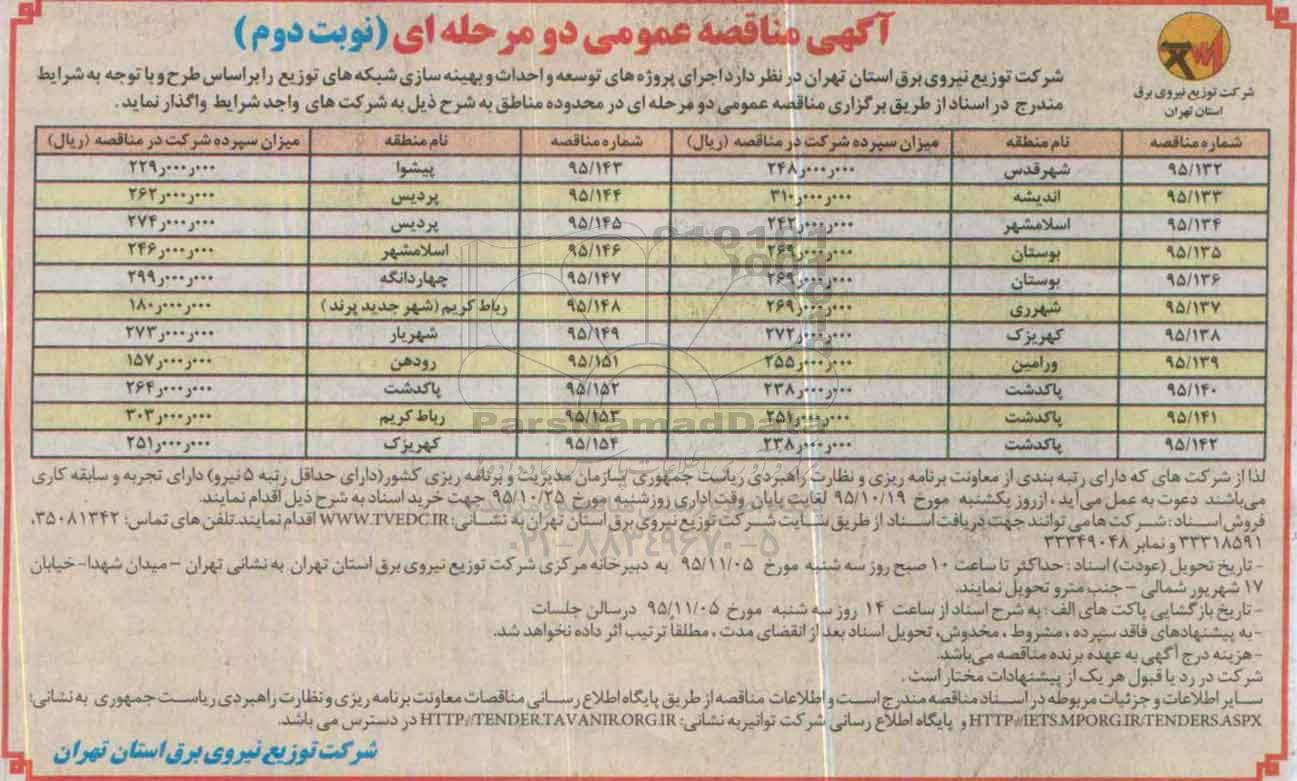 آگهی مناقصه عمومی دو مرحله ای (نوبت دوم)
شرکت توزیع نیروی برق
استان تهران
شرکت توزیع نیروی برق استان تهران در نظر دارد اجرای پروژه های توسعه و احداث و بهینه سازی شبکه های توزیع را براساس طرح و با توجه به شرایط
مندرج در اسناد از طریق برگزاری مناقصه عمومی دو مرحله ای در محدوده مناطق به شرح ذیل به شرکت های واجد شرایط واگذار نماید.
شماره مناقصه نام منطقه میزان سپرده شرکت در مناقصه (ریال) شماره مناقصه نام منطقه میزان سپرده شرکت در مناقصه (ریال)
۹۵/۱۳۲ شهرقدس ۲۴۸٫۰۰۰٫۰۰۰ ۹۵/۱۴۳ پیشوا ۲۲۹٫۰۰۰٫۰۰۰
۹۵/۱۳۳ اندیشه ۳۱۰٫۰۰۰٫۰۰۰ ۹۵/۱۴۴ پردیس ۲۶۲٫۰۰۰٫۰۰۰
۹۵/۱۳۴ اسلامشهر ۲۴۲٫۰۰۰٫۰۰۰ ۹۵/۱۴۵ پردیس ۲۷۴٫۰۰۰٫۰۰۰
۹۵/۱۳۵ بوستان ۲۶۹٫۰۰۰٫۰۰۰ ۹۵/۱۴۶ اسلامشهر ۲۴۶٫۰۰۰٫۰۰۰
۹۵/۱۳۶ بوستان ۲۶۹٫۰۰۰٫۰۰۰ ۹۵/۱۴۷ چهاردانگه ۲۹۹٫۰۰۰٫۰۰۰
۹۵/۱۳۷ شهرری ۲۶۹٫۰۰۰٫۰۰۰ ۹۵/۱۴۸ رباط کریم (شهر جدید پرند) ۱۸۰٫۰۰۰٫۰۰۰
۹۵/۱۳۸ کهریزک ۲۷۲٫۰۰۰٫۰۰۰ ۹۵/۱۴۹ شهریار ۲۷۳٫۰۰۰٫۰۰۰
۹۵/۱۳۹ ورامین ۲۵۵٫۰۰۰٫۰۰۰ ۹۵/۱۵۱ رودهن ۱۵۷٫۰۰۰٫۰۰۰
۹۵/۱۴۰ پاکدشت ۲۳۸٫۰۰۰٫۰۰۰ ۹۵/۱۵۲ پاکدشت ۲۶۴٫۰۰۰٫۰۰۰
۹۵/۱۴۱ پاکدشت ۲۵۱٫۰۰۰٫۰۰۰ ۹۵/۱۵۳ رباط کریم ۳۰۳٫۰۰۰٫۰۰۰
۹۵/۱۴۲ پاکدشت ۲۳۸٫۰۰۰٫۰۰۰ ۹۵/۱۵۴ کهریزک ۲۵۱٫۰۰۰٫۰۰۰
ParsNamadData
۰۲۱-۸۸۳۴۹۶۷۰-۵
لذا از شرکت های که دارای رتبه بندی از معاونت برنامه ریزی و نظارت راهبردی ریاست جمهوری (سازمان مدیریت و برنامه ریزی کشور (دارای حداقل رتبه ۵ نیرو) دارای تجربه و سابقه کاری
می‌باشند دعوت به عمل می آید، از روز یکشنبه مورخ ۹۵/۱۰/۱۹ لغایت پایان وقت اداری روز شنبه مورخ ۹۵/۱۰/۲۵ جهت خرید اسناد به شرح ذیل اقدام نمایند.
فروش اسناد: شرکت ها می توانند جهت دریافت اسناد از طریق سایت شرکت توزیع نیروی برق استان تهران به نشانی: WWW.TVEDC.IR اقدام نمایند. تلفن های تماس: ۳۵۰۸۱۳۴۲،
۳۳۳۱۸۵۹۱ و نمابر ۳۳۳۴۹۰۴۸
- تاریخ تحویل (عودت) اسناد: حداکثر تا ساعت ۱۰ صبح روز سه شنبه مورخ ۹۵/۱۱/۰۵ به دبیرخانه مرکزی شرکت توزیع نیروی برق استان تهران به نشانی تهران - میدان شهدا - خیابان
۱۷ شهریور شمالی - جنب مترو تحویل نمایند.
- تاریخ بازگشایی پاکت های الف: به شرح اسناد از ساعت ۱۴ روز سه شنبه مورخ ۹۵/۱۱/۰۵ در سالن جلسات
- به پیشنهادهای فاقد سپرده، مشروط، مخدوش، تحویل اسناد بعد از انقضای مدت، مطلقا ترتیب اثر داده نخواهد شد.
- هزینه درج آگهی به عهده برنده مناقصه می‌باشد.
شرکت در رد یا قبول هر یک از پیشنهادات مختار است.
سایر اطلاعات و جزئیات مربوطه در اسناد مناقصه مندرج است و اطلاعات مناقصه از طریق پایگاه اطلاع رسانی مناقصات معاونت برنامه ریزی و نظارت راهبردی ریاست جمهوری به نشانی:
HTTP://IETS.MPORG.IR/TENDERS.ASPX و پایگاه اطلاع رسانی شرکت توانیر به نشانی: HTTP://TENDER.TAVANIR.ORG.IR در دسترس می باشد.
شرکت توزیع نیروی برق استان تهران